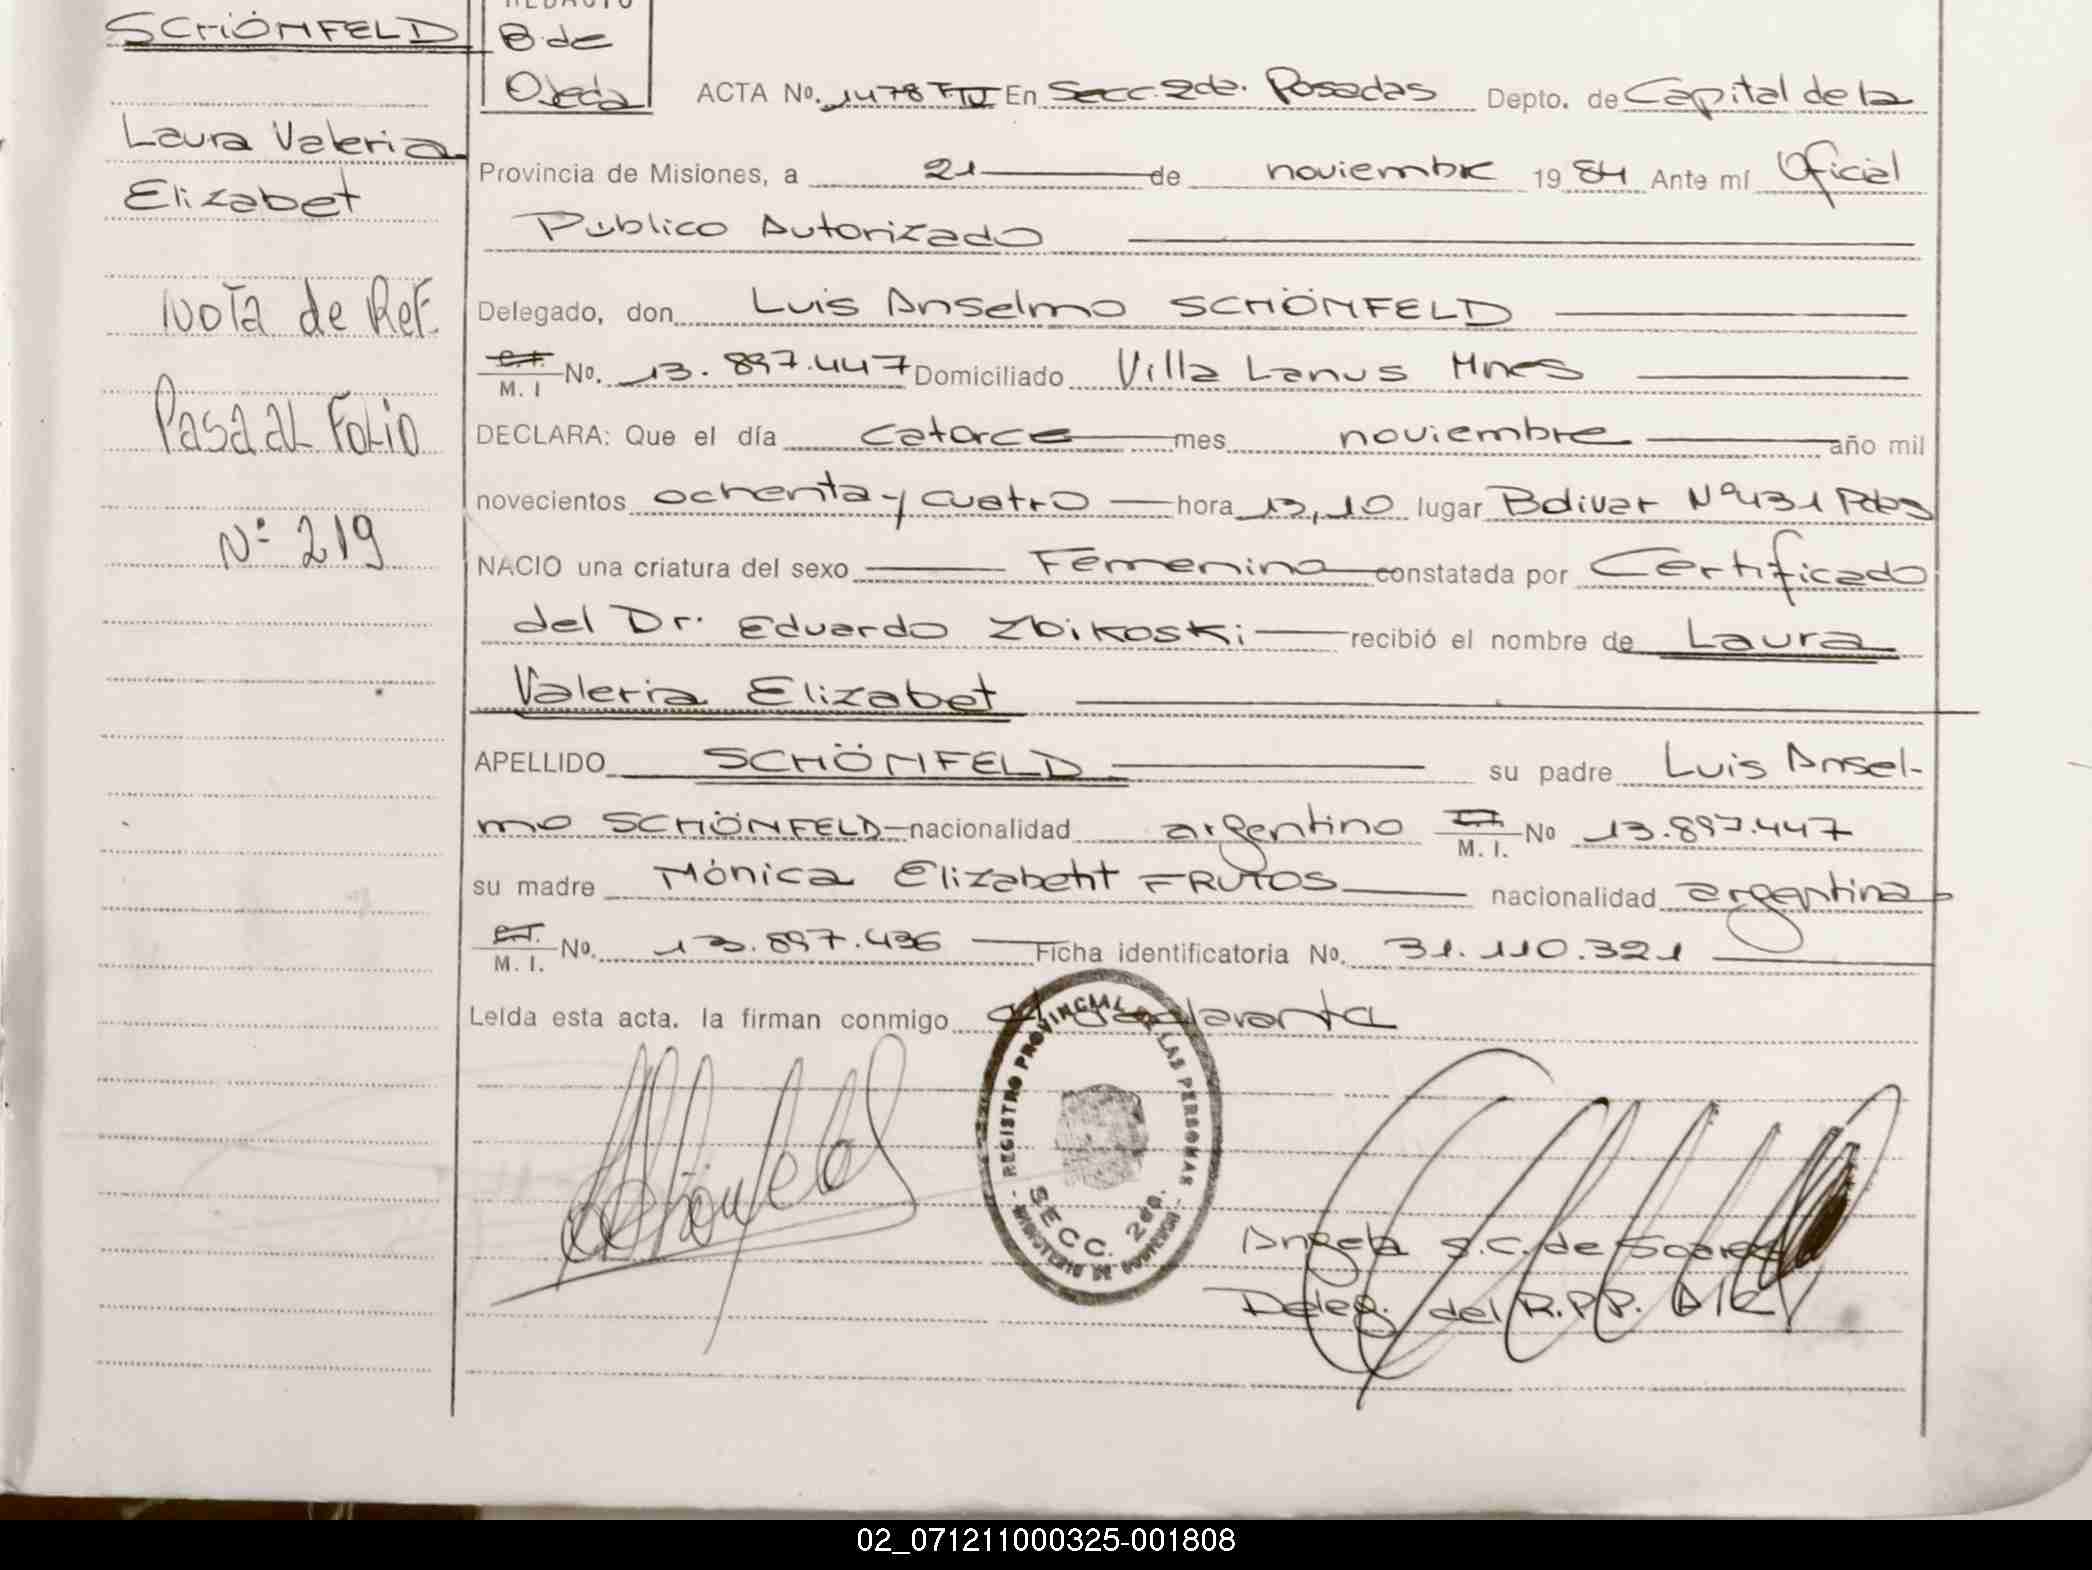 SCHÖNFELD
Laura Valeria
Elizabet
Nota de Ref.
Pasa al Folio
Nº 219
REDACTO
B. de
Ojeda
ACTA Nº. 1478 TIV En Secc. 2da. Posadas Depto. de Capital de la
Provincia de Misiones, a 21 de noviembre 1984 Ante mí Oficial
Público Autorizado
Delegado, don Luis Anselmo SCHÖNFELD
C.I. M. I No. 13.897.447 Domiciliado Villa Lanus Mnes
DECLARA: Que el día catorce mes noviembre año mil
novecientos ochenta y cuatro hora 13,10 lugar Bolivar Nº 431 Pdas
NACIO una criatura del sexo Femenino constatada por Certificado
del Dr. Eduardo Zbikoski recibió el nombre de Laura
Valeria Elizabet
APELLIDO SCHÖNFELD su padre Luis Ansel-
mo SCHÖNFELD nacionalidad argentino C.I. M. I. No 13.897.447
su madre Mónica Elizabeht FRUTOS nacionalidad argentina
C.I. M. I. No. 13.897.436 Ficha identificatoria No. 31.110.321
Leída esta acta. la firman conmigo el declarante
REGISTRO PROVINCIAL DE LAS PERSONAS
SECC. 2da.
MINISTERIO DE GOBIERNO
Angela S. C. de Soarez
Deleg. del R.P.P. A/C
02_071211000325-001808